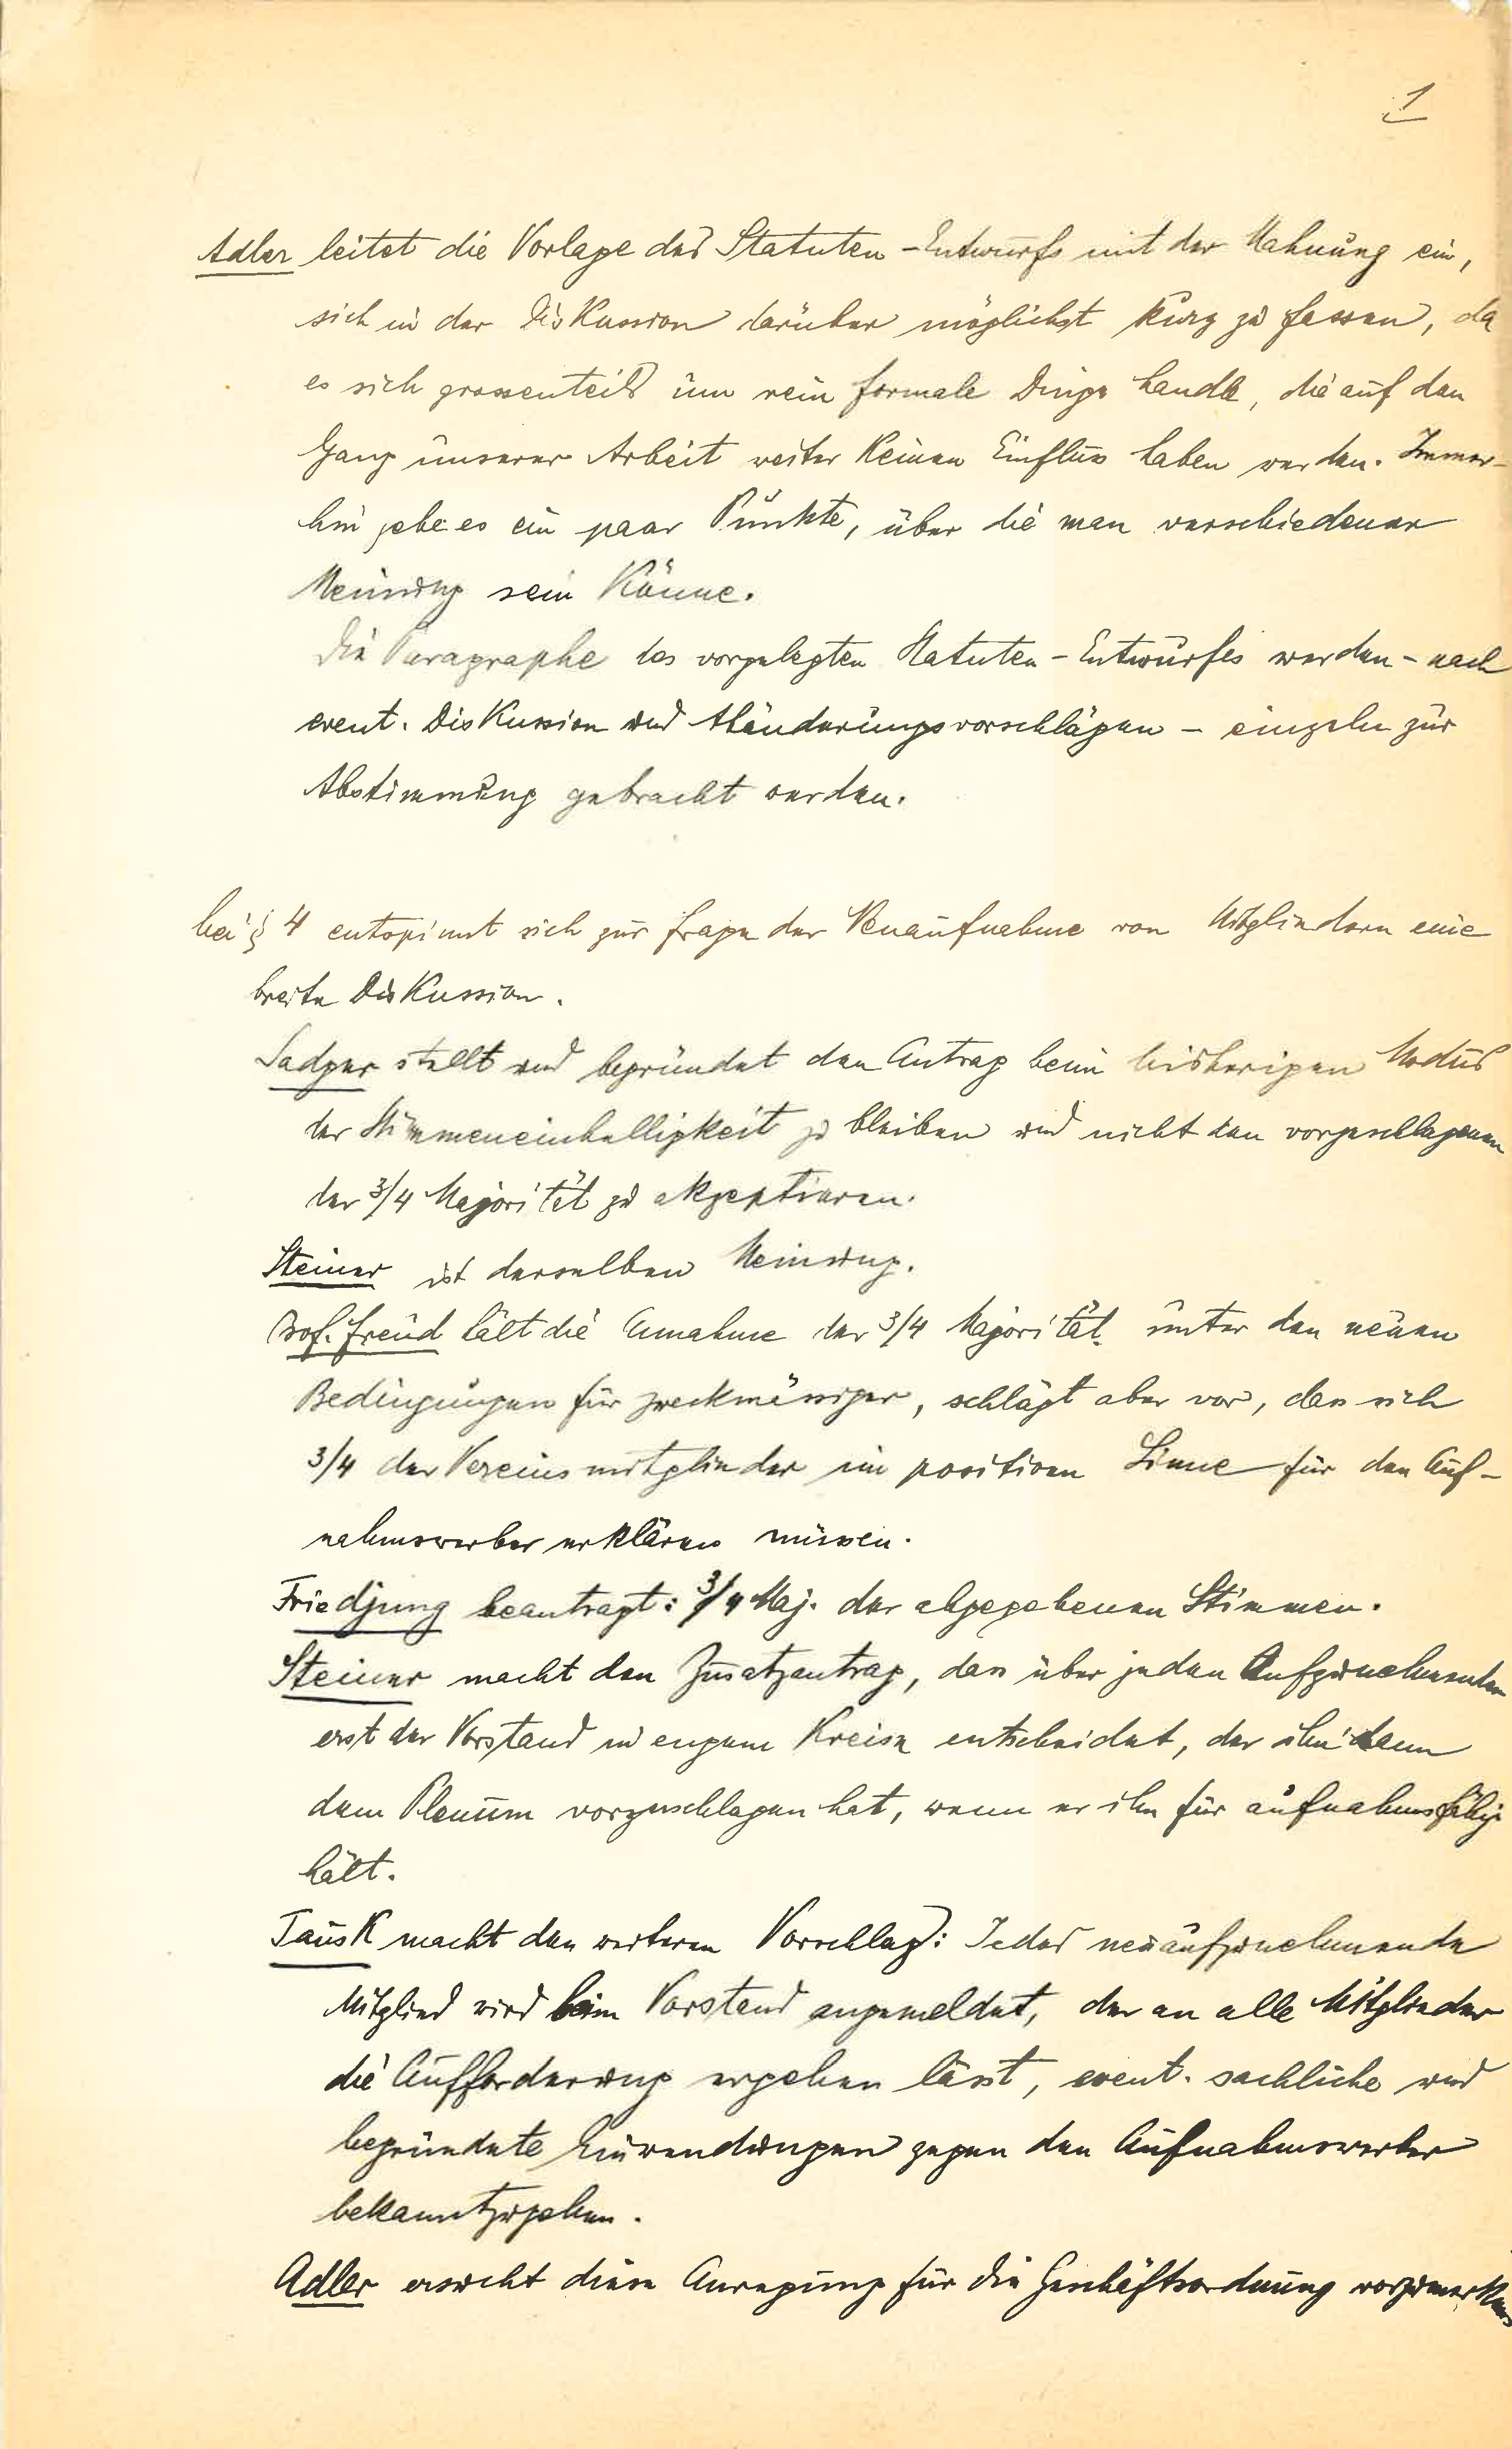 1
Adler leitet die Vorlage des Statuten-Entwurfs mit der Mahnung ein,
sich in der Diskussion darüber möglichst kurz zu fassen, da
es sich grossenteils um rein formale Dinge handle, die auf den
Gang unserer Arbeit weiter keinen Einfluss haben werden. Immer-
hin gebe es ein paar Punkte, über die man verschiedener
Meinung sein könne.
Die Paragraphe des vorgelegten Statuten-Entwurfes werden - nach
event. Diskussion und Abänderungsvorschlägen - einzeln zur
Abstimmung gebracht werden.
bei § 4 entspinnt sich zur Frage der Neuaufnahme von Mitgliedern eine
breite Diskussion.
Sadger stellt und begründet den Antrag beim bisherigen Modus
der Stimmeneinhelligkeit zu bleiben und nicht den vorgeschlagenen
der 3/4 Majorität zu akzeptieren.
Steiner ist derselben Meinung.
Prof. Freud hält die Annahme der 3/4 Majorität unter den neuen
Bedingungen für zweckmässiger, schlägt aber vor, dass sich
3/4 der Vereinsmitglieder im positiven Sinne für den Auf-
nahmswerber erklären müssen.
Friedjung beantragt: 3/4 Maj. der abgegebenen Stimmen.
Steiner macht den Zusatzantrag, dass über jeden Aufzunehmenden
erst der Vorstand in engem Kreise entscheidet, der ihn dann
dem Plenum vorzuschlagen hat, wenn er ihn für aufnahmsfähig
hält.
Tausk macht den weiteren Vorschlag: Jedes neuaufzunehmende
Mitglied wird beim Vorstand angemeldet, der an alle Mitglieder
die Aufforderung ergehen lässt, event. sachliche und
begründete Einwendungen gegen den Aufnahmswerber
bekanntzugeben.
Adler ersucht diese Anregung für die Geschäftsordnung vorzumerken